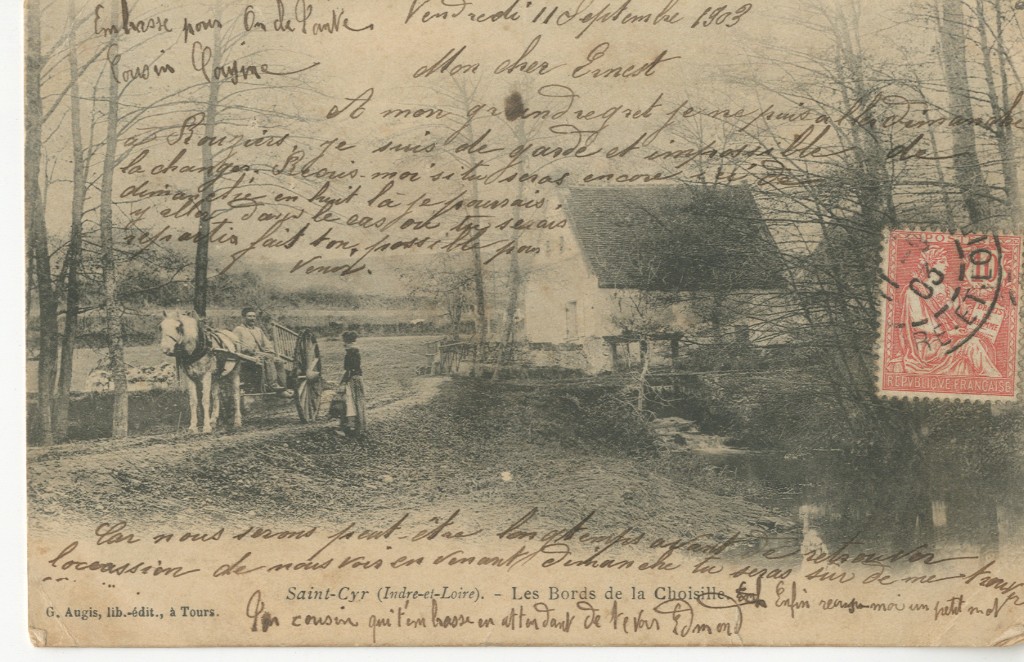 Vendredi 11 Septembre 1903
Embrasse pour Oncle Tante
Cousin Cousine
Mon cher Ernest
A mon grand regret je ne puis aller dimanche
à Rouziers, je suis de garde et impossible de
la changer. Écris-moi si tu seras encore ici de
dimanche en huit là je pourrais
y aller dans le cas où tu serais
repartis fait ton possible pour
venir.
Car nous serons peut-être longtemps avant de retrouver
l'occassion de nous voir en venant dimanche tu seras sur de me trouver
Saint-Cyr (Indre-et-Loire). - Les Bords de la Choisille
Enfin moi un petit mot
G. Augis, lib.-édit., à Tours.
Ton cousin qui t'embrasse en attendant de te voir Edmond
03
ET-LOIR
RÉPUBLIQUE FRANÇAISE